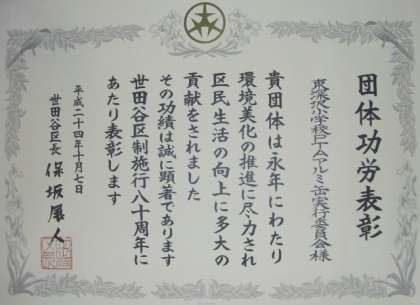 団体功労表彰
東深沢小学校PTAアルミ缶実行委員会様
貴団体は永年にわたり
環境美化の推進に尽力され
区民生活の向上に多大の
貢献をされました
その功績は誠に顕著であります
世田谷区制施行八十周年に
あたり表彰します
平成二十四年十月七日
世田谷区長 保坂展人